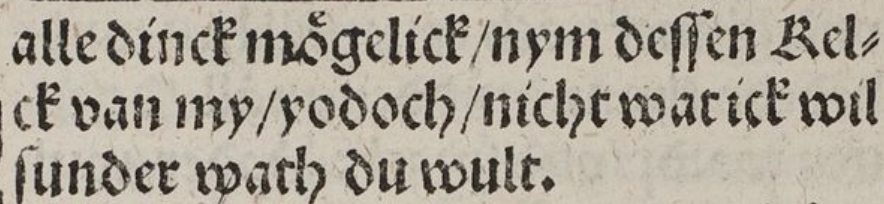 alle dinck moͤgelick/nym deſſen Kel⸗
ck van my/yodoch/nicht wat ick wil
ſunder wath du wult.